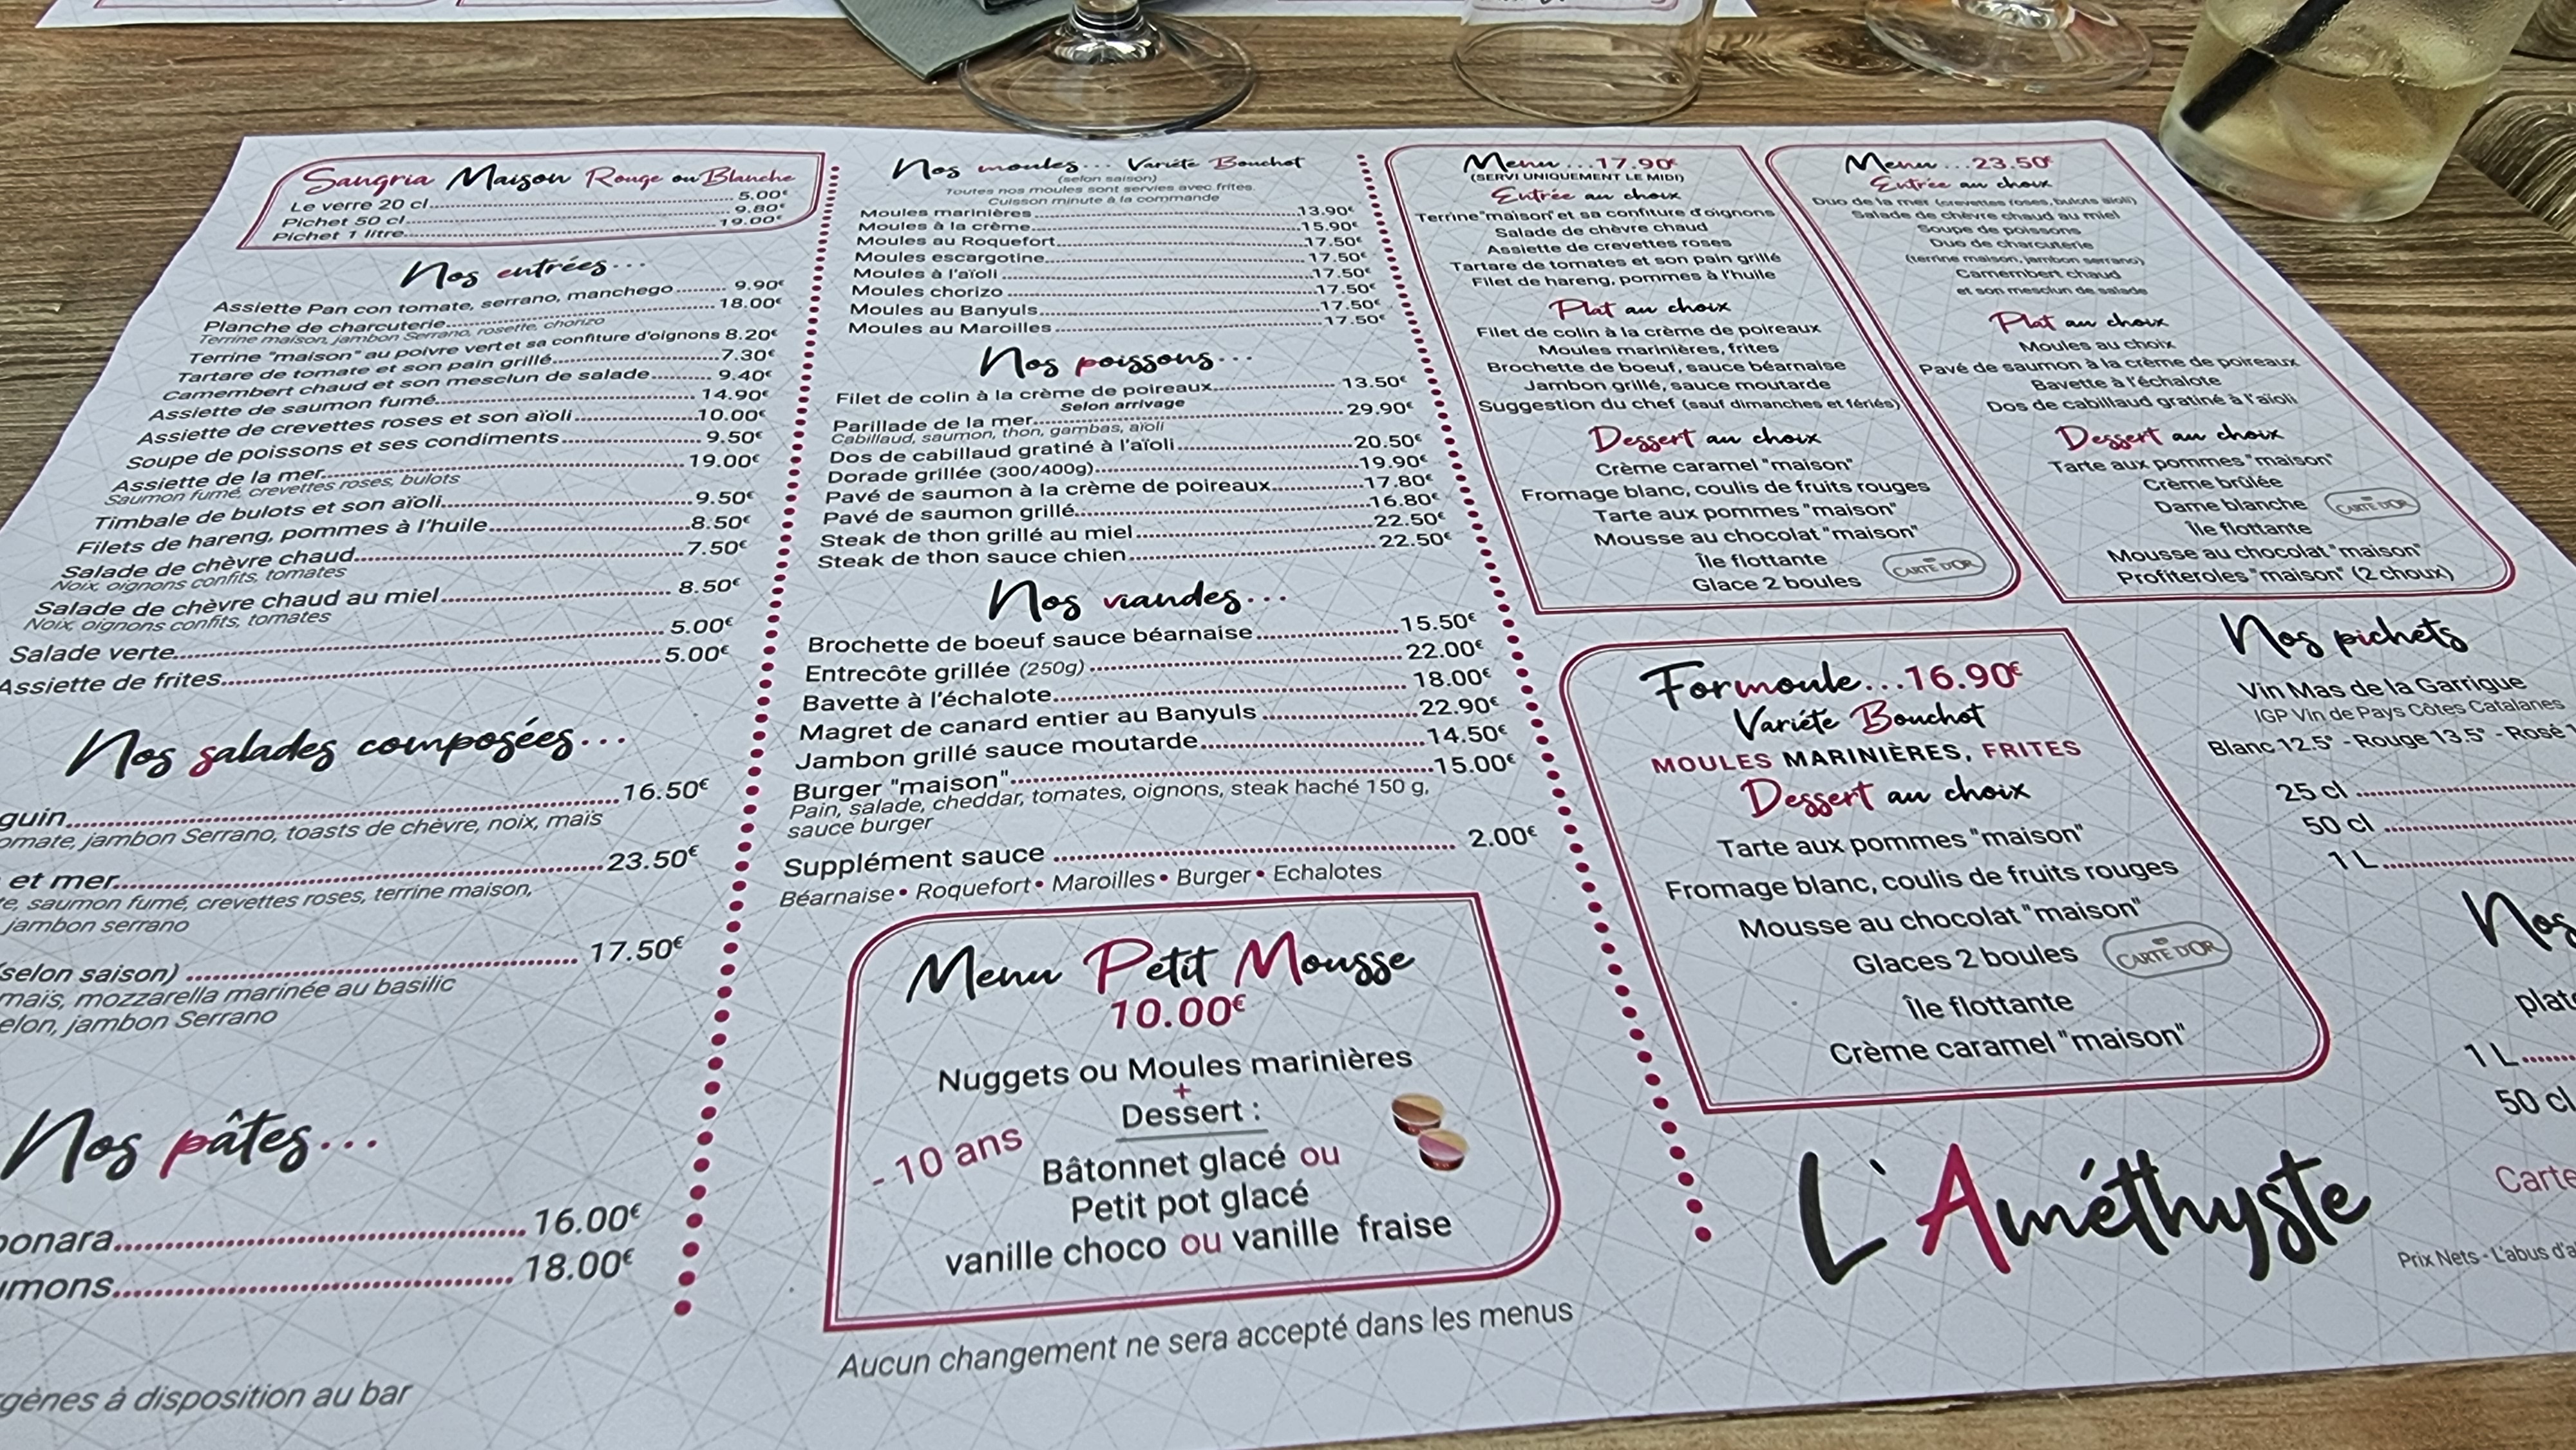 Sangria Maison Rouge ou Blanche
Le verre 20 cl 5.00€
Pichet 50 cl 9.80€
Pichet 1 litre 19.00€
Nos entrées...
Assiette Pan con tomate, serrano, manchego 9.90€
Planche de charcuterie 18.00€
Terrine maison, jambon Serrano, rosette, chorizo
Terrine "maison" au poivre vert et sa confiture d'oignons 8.20€
Tartare de tomate et son pain grillé 7.30€
Camembert chaud et son mesclun de salade 9.40€
Assiette de saumon fumé 14.90€
Assiette de crevettes roses et son aïoli 10.00€
Soupe de poissons et ses condiments 9.50€
Assiette de la mer 19.00€
Saumon fumé, crevettes roses, bulots
Timbale de bulots et son aïoli 9.50€
Filets de hareng, pommes à l'huile 8.50€
Salade de chèvre chaud 7.50€
Noix, oignons confits, tomates
Salade de chèvre chaud au miel 8.50€
Noix, oignons confits, tomates
Salade verte 5.00€
Assiette de frites 5.00€
Nos salades composées...
guin 16.50€
omate, jambon Serrano, toasts de chèvre, noix, maïs
et mer 23.50€
te, saumon fumé, crevettes roses, terrine maison,
jambon serrano
(selon saison) 17.50€
maïs, mozzarella marinée au basilic
elon, jambon Serrano
Nos pâtes...
bonara 16.00€
umons 18.00€
rgènes à disposition au bar
Nos moules... Variété Bouchot
(selon saison)
Toutes nos moules sont servies avec frites.
Cuisson minute à la commande
Moules marinières 13.90€
Moules à la crème 15.90€
Moules au Roquefort 17.50€
Moules escargotine 17.50€
Moules à l'aïoli 17.50€
Moules chorizo 17.50€
Moules au Banyuls 17.50€
Moules au Maroilles 17.50€
Nos poissons...
Filet de colin à la crème de poireaux 13.50€
Selon arrivage
Parillade de la mer 29.90€
Cabillaud, saumon, thon, gambas, aïoli
Dos de cabillaud gratiné à l'aïoli 20.50€
Dorade grillée (300/400g) 19.90€
Pavé de saumon à la crème de poireaux 17.80€
Pavé de saumon grillé 16.80€
Steak de thon grillé au miel 22.50€
Steak de thon sauce chien 22.50€
Nos viandes...
Brochette de boeuf sauce béarnaise 15.50€
Entrecôte grillée (250g) 22.00€
Bavette à l'échalote 18.00€
Magret de canard entier au Banyuls 22.90€
Jambon grillé sauce moutarde 14.50€
Burger "maison" 15.00€
Pain, salade, cheddar, tomates, oignons, steak haché 150 g,
sauce burger
Supplément sauce 2.00€
Béarnaise • Roquefort • Maroilles • Burger • Echalotes
Menu Petit Mousse
10.00€
Nuggets ou Moules marinières
+
Dessert :
- 10 ans
Bâtonnet glacé ou
Petit pot glacé
vanille choco ou vanille fraise
Aucun changement ne sera accepté dans les menus
Menu ...17.90€
(SERVI UNIQUEMENT LE MIDI)
Entrée au choix
Terrine "maison" et sa confiture d'oignons
Salade de chèvre chaud
Assiette de crevettes roses
Tartare de tomates et son pain grillé
Filet de hareng, pommes à l'huile
Plat au choix
Filet de colin à la crème de poireaux
Moules marinières, frites
Brochette de boeuf, sauce béarnaise
Jambon grillé, sauce moutarde
Suggestion du chef (sauf dimanches et fériés)
Dessert au choix
Crème caramel "maison"
Fromage blanc, coulis de fruits rouges
Tarte aux pommes "maison"
Mousse au chocolat "maison"
Île flottante
Glace 2 boules
CARTE D'OR
Menu ...23.50€
Entrée au choix
Duo de la mer (crevettes roses, bulots aïoli)
Salade de chèvre chaud au miel
Soupe de poissons
Duo de charcuterie
(terrine maison, jambon serrano)
Camembert chaud
et son mesclun de salade
Plat au choix
Moules au choix
Pavé de saumon à la crème de poireaux
Bavette à l'échalote
Dos de cabillaud gratiné à l'aïoli
Dessert au choix
Tarte aux pommes "maison"
Crème brûlée
Dame blanche
CARTE D'OR
Île flottante
Mousse au chocolat "maison"
Profiteroles "maison" (2 choux)
Formoule...16.90€
Variété Bouchot
MOULES MARINIÈRES, FRITES
Dessert au choix
Tarte aux pommes "maison"
Fromage blanc, coulis de fruits rouges
Mousse au chocolat "maison"
Glaces 2 boules
CARTE D'OR
Île flottante
Crème caramel "maison"
Nos pichets
Vin Mas de la Garrigue
IGP Vin de Pays Côtes Catalanes
Blanc 12.5° - Rouge 13.5° - Rosé 1
25 cl
50 cl
1 L
Nos
plat
1 L
50 cl
Carte
L'Améthyste
Prix Nets - L'abus d'al